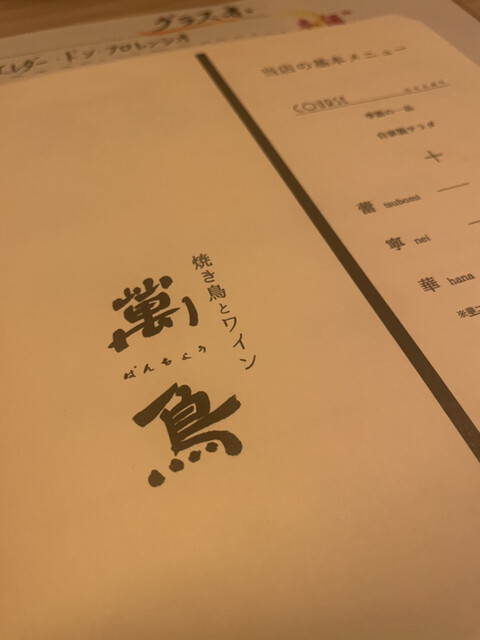 グラス
エレダー・ドン フロレンシオ
焼き鳥とワイン
萬鳥
ばんちょう
当店の基本メニュー
COURSE
季節の一品
自家製サラダ
+
蕾 tsubomi
寧 nei
華 hana